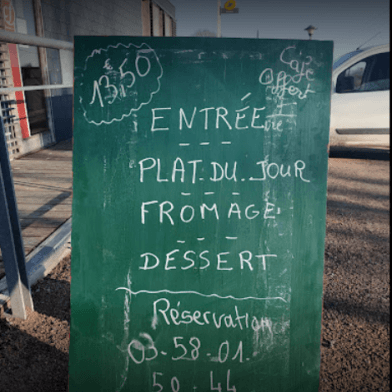 13.50
Café
Offert
ENTRÉE
PLAT.DU.JOUR
FROMAGE
DESSERT
Réservation
03-58-01.
50-44